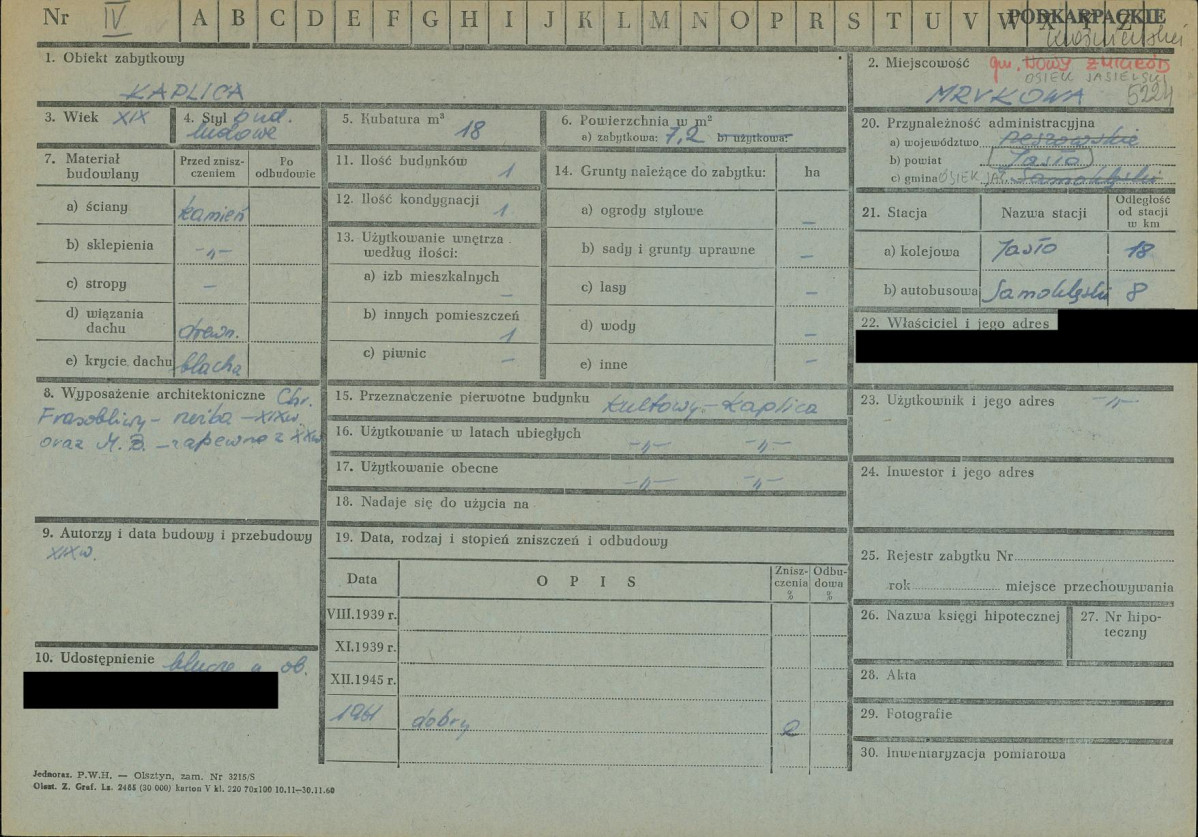 Nr IV A B C D E F G H I J K L M N O P R S T U V W X Y Z PODKARPACKIE
krośnieński
1. Obiekt zabytkowy
KAPLICA
2. Miejscowość gm. NOWY ŻMIGRÓD
OSIEK JASIELSKI
MRUKOWA 5224
3. Wiek XIX
4. Styl bud.
ludowe
5. Kubatura m³
18
6. Powierzchnia w m²
a) zabytkowa: 7,2 b) użytkowa:
7. Materiał budowlany
Przed zniszczeniem
Po odbudowie
a) ściany kamień
b) sklepienia -„-
c) stropy –
d) wiązania dachu drewn.
e) krycie dachu blacha
8. Wyposażenie architektoniczne Chr.
Frasobliwy - rzeźba - XIX w.
oraz M. B. - zapewne z XX w
9. Autorzy i data budowy i przebudowy
XIX w.
10. Udostępnienie klucze u ob.
11. Ilość budynków
1
12. Ilość kondygnacji
1
13. Użytkowanie wnętrza
według ilości:
a) izb mieszkalnych
–
b) innych pomieszczeń
1
c) piwnic –
14. Grunty należące do zabytku: ha
a) ogrody stylowe –
b) sady i grunty uprawne –
c) lasy –
d) wody –
e) inne –
15. Przeznaczenie pierwotne budynku kultowy - kaplica
16. Użytkowanie w latach ubiegłych
-„- -„-
17. Użytkowanie obecne
-„- -„-
18. Nadaje się do użycia na
19. Data, rodzaj i stopień zniszczeń i odbudowy
Data O P I S Zniszczenia % Odbudowa %
VIII.1939 r.
XI.1939 r.
XII.1945 r.
1961 dobry 2
20. Przynależność administracyjna
a) województwo rzeszowskie
b) powiat Jasło
c) gmina OSIEK JAS. Samoklęski
21. Stacja Nazwa stacji Odległość od stacji w km
a) kolejowa Jasło 18
b) autobusowa Samoklęski 8
22. Właściciel i jego adres
23. Użytkownik i jego adres -„-
24. Inwestor i jego adres
25. Rejestr zabytku Nr
rok miejsce przechowywania
26. Nazwa księgi hipotecznej
27. Nr hipoteczny
28. Akta
29. Fotografie
30. Inwentaryzacja pomiarowa
Jednoraz. P.W.H. — Olsztyn, zam. Nr 3215/S
Olszt. Z. Graf. Lz. 2485 (30 000) karton V kl. 220 70x100 10.11—30.11.60